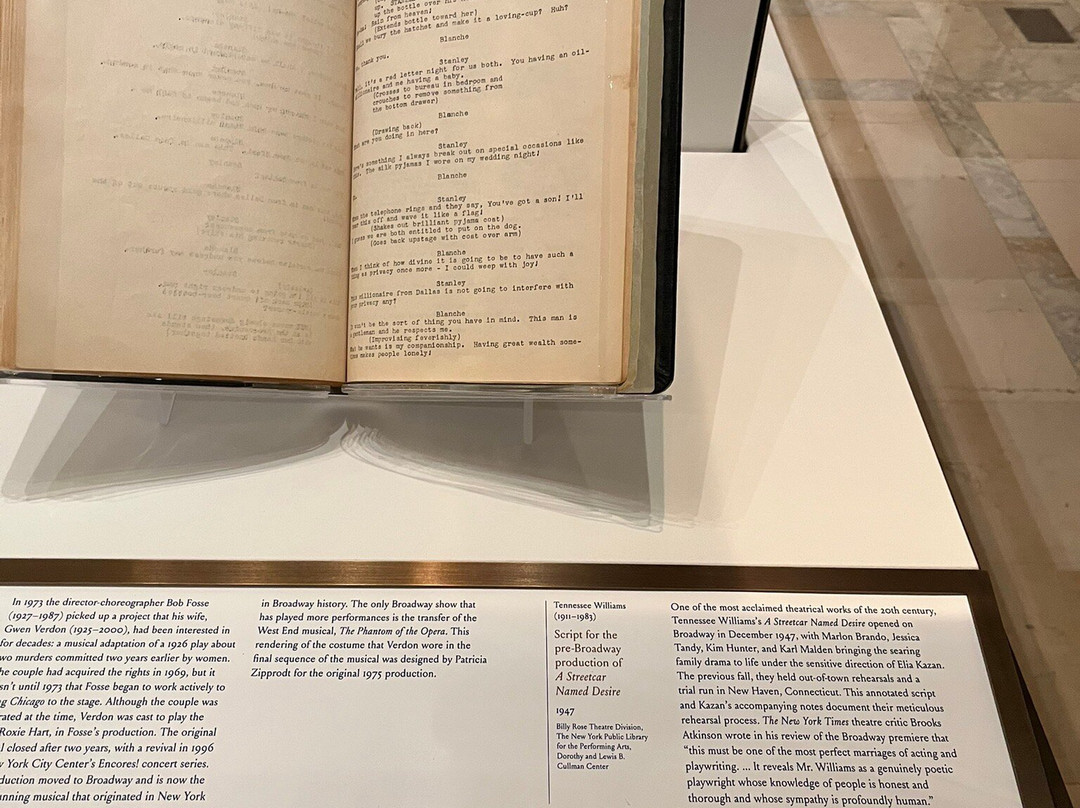 up.
up the bottle over his
Rain from heaven!
(Extends bottle toward her)
we bury the hatchet and make it a loving-cup? Huh?
Blanche
thank you.
Stanley
it's a red letter night for us both. You having an oil-
and me having a baby.
(Crosses to bureau in bedroom and
crouches to remove something from
the bottom drawer)
Blanche
(Drawing back)
are you doing in here?
Stanley
something I always break out on special occasions like
The silk pyjamas I wore on my wedding night!
Blanche
Stanley
the telephone rings and they say, You've got a son! I'll
this off and wave it like a flag!
(Shakes out brilliant pyjama coat)
I guess we are both entitled to put on the dog.
(Goes back upstage with coat over arm)
Blanche
I think of how divine it is going to be to have such a
as privacy once more - I could weep with joy!
Stanley
millionaire from Dallas is not going to interfere with
privacy any?
Blanche
be the sort of thing you have in mind. This man is
gentleman and he respects me.
(Improvising feverishly)
he wants is my companionship. Having great wealth some-
makes people lonely!
In 1973 the director-choreographer Bob Fosse
(1927–1987) picked up a project that his wife,
Gwen Verdon (1925–2000), had been interested in
for decades: a musical adaptation of a 1926 play about
two murders committed two years earlier by women.
he couple had acquired the rights in 1969, but it
sn't until 1973 that Fosse began to work actively to
g Chicago to the stage. Although the couple was
rated at the time, Verdon was cast to play the
Roxie Hart, in Fosse's production. The original
l closed after two years, with a revival in 1996
York City Center's Encores! concert series.
duction moved to Broadway and is now the
nning musical that originated in New York
in Broadway history. The only Broadway show that
has played more performances is the transfer of the
West End musical, The Phantom of the Opera. This
rendering of the costume that Verdon wore in the
final sequence of the musical was designed by Patricia
Zipprodt for the original 1975 production.
Tennessee Williams
(1911–1983)
Script for the
pre-Broadway
production of
A Streetcar
Named Desire
1947
Billy Rose Theatre Division,
The New York Public Library
for the Performing Arts,
Dorothy and Lewis B.
Cullman Center
One of the most acclaimed theatrical works of the 20th century,
Tennessee Williams's A Streetcar Named Desire opened on
Broadway in December 1947, with Marlon Brando, Jessica
Tandy, Kim Hunter, and Karl Malden bringing the searing
family drama to life under the sensitive direction of Elia Kazan.
The previous fall, they held out-of-town rehearsals and a
trial run in New Haven, Connecticut. This annotated script
and Kazan's accompanying notes document their meticulous
rehearsal process. The New York Times theatre critic Brooks
Atkinson wrote in his review of the Broadway premiere that
“this must be one of the most perfect marriages of acting and
playwriting. ... It reveals Mr. Williams as a genuinely poetic
playwright whose knowledge of people is honest and
thorough and whose sympathy is profoundly human.”